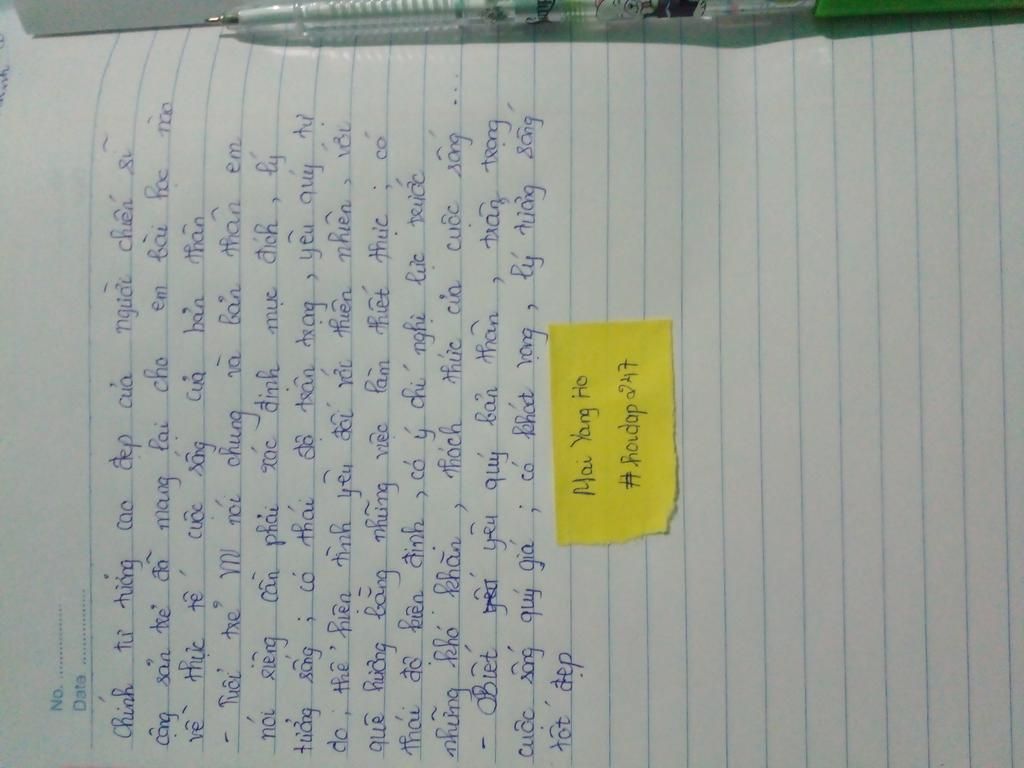 No. ..................
Date ..................
Chính tư tưởng cao đẹp của người chiến sĩ
cộng sản trẻ đã mang lại cho em bài học nào
về thực tế cuộc sống của bản thân
- Tuổi trẻ VN nói chung và bản thân em
nói riêng cần phải xác định mục đích, lý
tưởng sống ; có thái độ trân trọng, yêu quý tự
do ; thể hiện tình yêu đối với thiên nhiên, với
quê hương bằng những việc làm thiết thực ; có
thái độ kiên định, có ý chí nghị lực trước
những khó khăn, thách thức của cuộc sống ...
- Biết yêu quý bản thân, trân trọng
cuộc sống quý giá ; có khát vọng, lý tưởng sống
tốt đẹp
Mai Vang Ho
#hoidap247